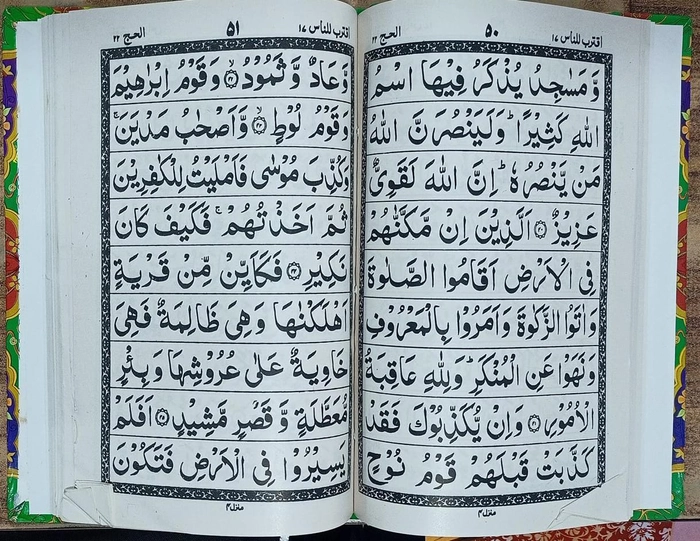 اقترب للناس ١٧ ٥٠ الحج ٢٢
وَّ مَسٰجِدُ يُذْكَرُ فِيْهَا اسْمُ
اللّٰهِ كَثِيْرًا ؕ وَلَيَنْصُرَنَّ اللّٰهُ
مَنْ يَّنْصُرُهٗ ؕ اِنَّ اللّٰهَ لَقَوِيٌّ
عَزِيْزٌ ﴿۴۰﴾ اَلَّذِيْنَ اِنْ مَّكَّنّٰهُمْ
فِى الْاَرْضِ اَقَامُوا الصَّلٰوةَ
وَاٰتَوُا الزَّكٰوةَ وَاَمَرُوْا بِالْمَعْرُوْفِ
وَنَهَوْا عَنِ الْمُنْكَرِ ؕ وَلِلّٰهِ عَاقِبَةُ
الْاُمُوْرِ ﴿۴۱﴾ وَاِنْ يُّكَذِّبُوْكَ فَقَدْ
كَذَّبَتْ قَبْلَهُمْ قَوْمُ نُوْحٍ
منزل ۴
اقترب للناس ١٧ ٥١ الحج ٢٢
وَّعَادٌ وَّ ثَمُوْدُ ﴿۴۲﴾ۙ وَقَوْمُ اِبْرٰهِيْمَ
وَقَوْمُ لُوْطٍ ﴿۴۳﴾ۙ وَّاَصْحٰبُ مَدْيَنَ ۚ
وَكُذِّبَ مُوْسٰى فَاَمْلَيْتُ لِلْكٰفِرِيْنَ
ثُمَّ اَخَذْتُهُمْ ۚ فَكَيْفَ كَانَ
نَكِيْرِ ﴿۴۴﴾ فَكَاَيِّنْ مِّنْ قَرْيَةٍ
اَهْلَكْنٰهَا وَهِىَ ظَالِمَةٌ فَهِىَ
خَاوِيَةٌ عَلٰى عُرُوْشِهَا وَبِئْرٍ
مُّعَطَّلَةٍ وَّ قَصْرٍ مَّشِيْدٍ ﴿۴۵﴾ اَفَلَمْ
يَسِيْرُوْا فِى الْاَرْضِ فَتَكُوْنَ
منزل ۴